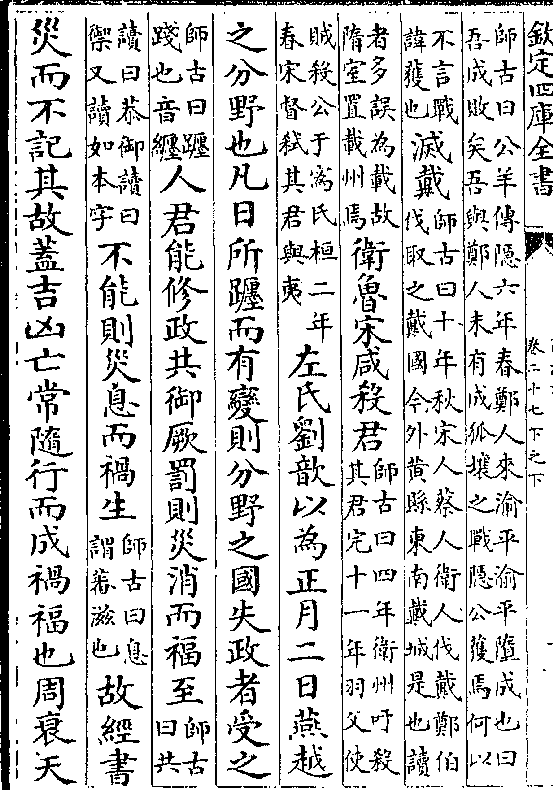 欽定四庫全書
卷二十七下之下
師古曰公羊傳隱六年春鄭人來渝平渝平墮成也曰
吾成敗矣吾與鄭人未有成狐壤之戰隱公獲焉何以
不言戰
諱獲也
滅戴
師古曰十年秋宋人蔡人衛人伐戴鄭伯
伐取之戴國今外黄縣東南戴城是也讀
者多誤為載故
隋室置載州焉
衛魯宋咸殺君
師古曰四年衛州吁殺
其君完十一年羽父使
賊殺公于寪氏桓二年
春宋督弑其君與夷
左氏劉歆以為正月二日燕越
之分野也凡日所躔而有變則分野之國失政者受之
師古曰躔
踐也音纏
人君能修政共御厥罰則災消而福至
師古
曰共
讀曰恭御讀曰
禦又讀如本字
不能則災息而禍生
師古曰息
謂蕃滋也
故經書
災而不記其故蓋吉凶亡常隨行而成禍福也周衰天